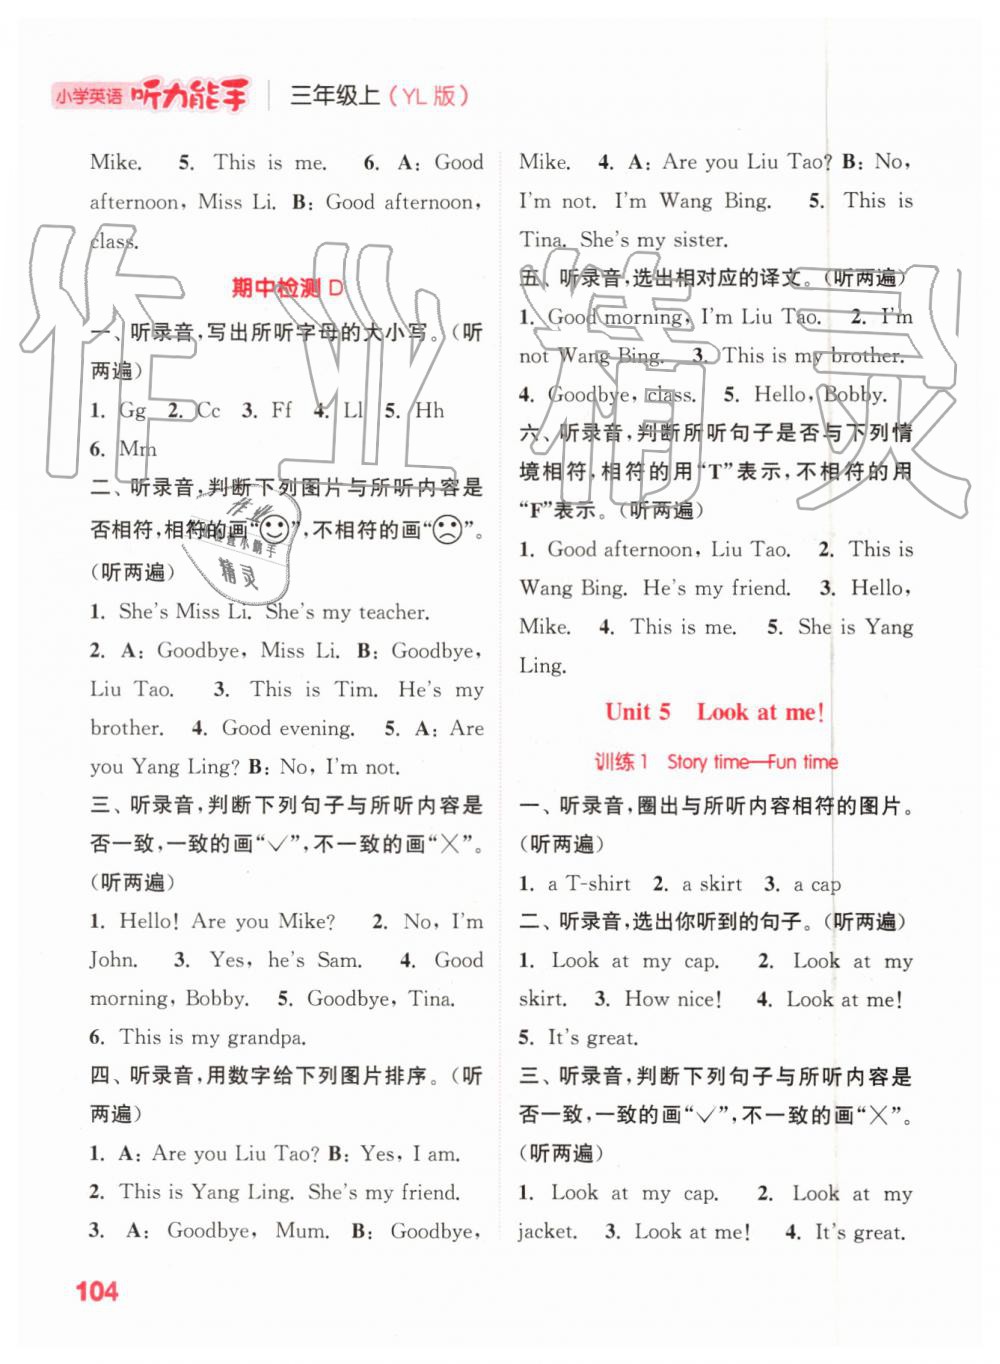 小学英语 听力能手 三年级上(YL版)
Mike. 5. This is me. 6. A: Good
afternoon, Miss Li. B: Good afternoon,
class.
期中检测 D
一、听录音,写出所听字母的大小写。(听
两遍)
1. Gg 2. Cc 3. Ff 4. Ll 5. Hh
6. Mm
二、听录音,判断下列图片与所听内容是
否相符,相符的画“☺”,不相符的画“☹”。
(听两遍)
1. She's Miss Li. She's my teacher.
2. A: Goodbye, Miss Li. B: Goodbye,
Liu Tao. 3. This is Tim. He's my
brother. 4. Good evening. 5. A: Are
you Yang Ling? B: No, I'm not.
三、听录音,判断下列句子与所听内容是
否一致,一致的画“✓”,不一致的画“╳”。
(听两遍)
1. Hello! Are you Mike? 2. No, I'm
John. 3. Yes, he's Sam. 4. Good
morning, Bobby. 5. Goodbye, Tina.
6. This is my grandpa.
四、听录音,用数字给下列图片排序。(听
两遍)
1. A: Are you Liu Tao? B: Yes, I am.
2. This is Yang Ling. She's my friend.
3. A: Goodbye, Mum. B: Goodbye,
Mike. 4. A: Are you Liu Tao? B: No,
I'm not. I'm Wang Bing. 5. This is
Tina. She's my sister.
五、听录音,选出相对应的译文。(听两遍)
1. Good morning, I'm Liu Tao. 2. I'm
not Wang Bing. 3. This is my brother.
4. Goodbye, class. 5. Hello, Bobby.
六、听录音,判断所听句子是否与下列情
境相符,相符的用“T”表示,不相符的用
“F”表示。(听两遍)
1. Good afternoon, Liu Tao. 2. This is
Wang Bing. He's my friend. 3. Hello,
Mike. 4. This is me. 5. She is Yang
Ling.
Unit 5 Look at me!
训练1 Story time—Fun time
一、听录音,圈出与所听内容相符的图片。
(听两遍)
1. a T-shirt 2. a skirt 3. a cap
二、听录音,选出你听到的句子。(听两遍)
1. Look at my cap. 2. Look at my
skirt. 3. How nice! 4. Look at me!
5. It's great.
三、听录音,判断下列句子与所听内容是
否一致,一致的画“✓”,不一致的画“╳”。
(听两遍)
1. Look at my cap. 2. Look at my
jacket. 3. Look at me! 4. It's great.
104
作业精灵
作业
精灵